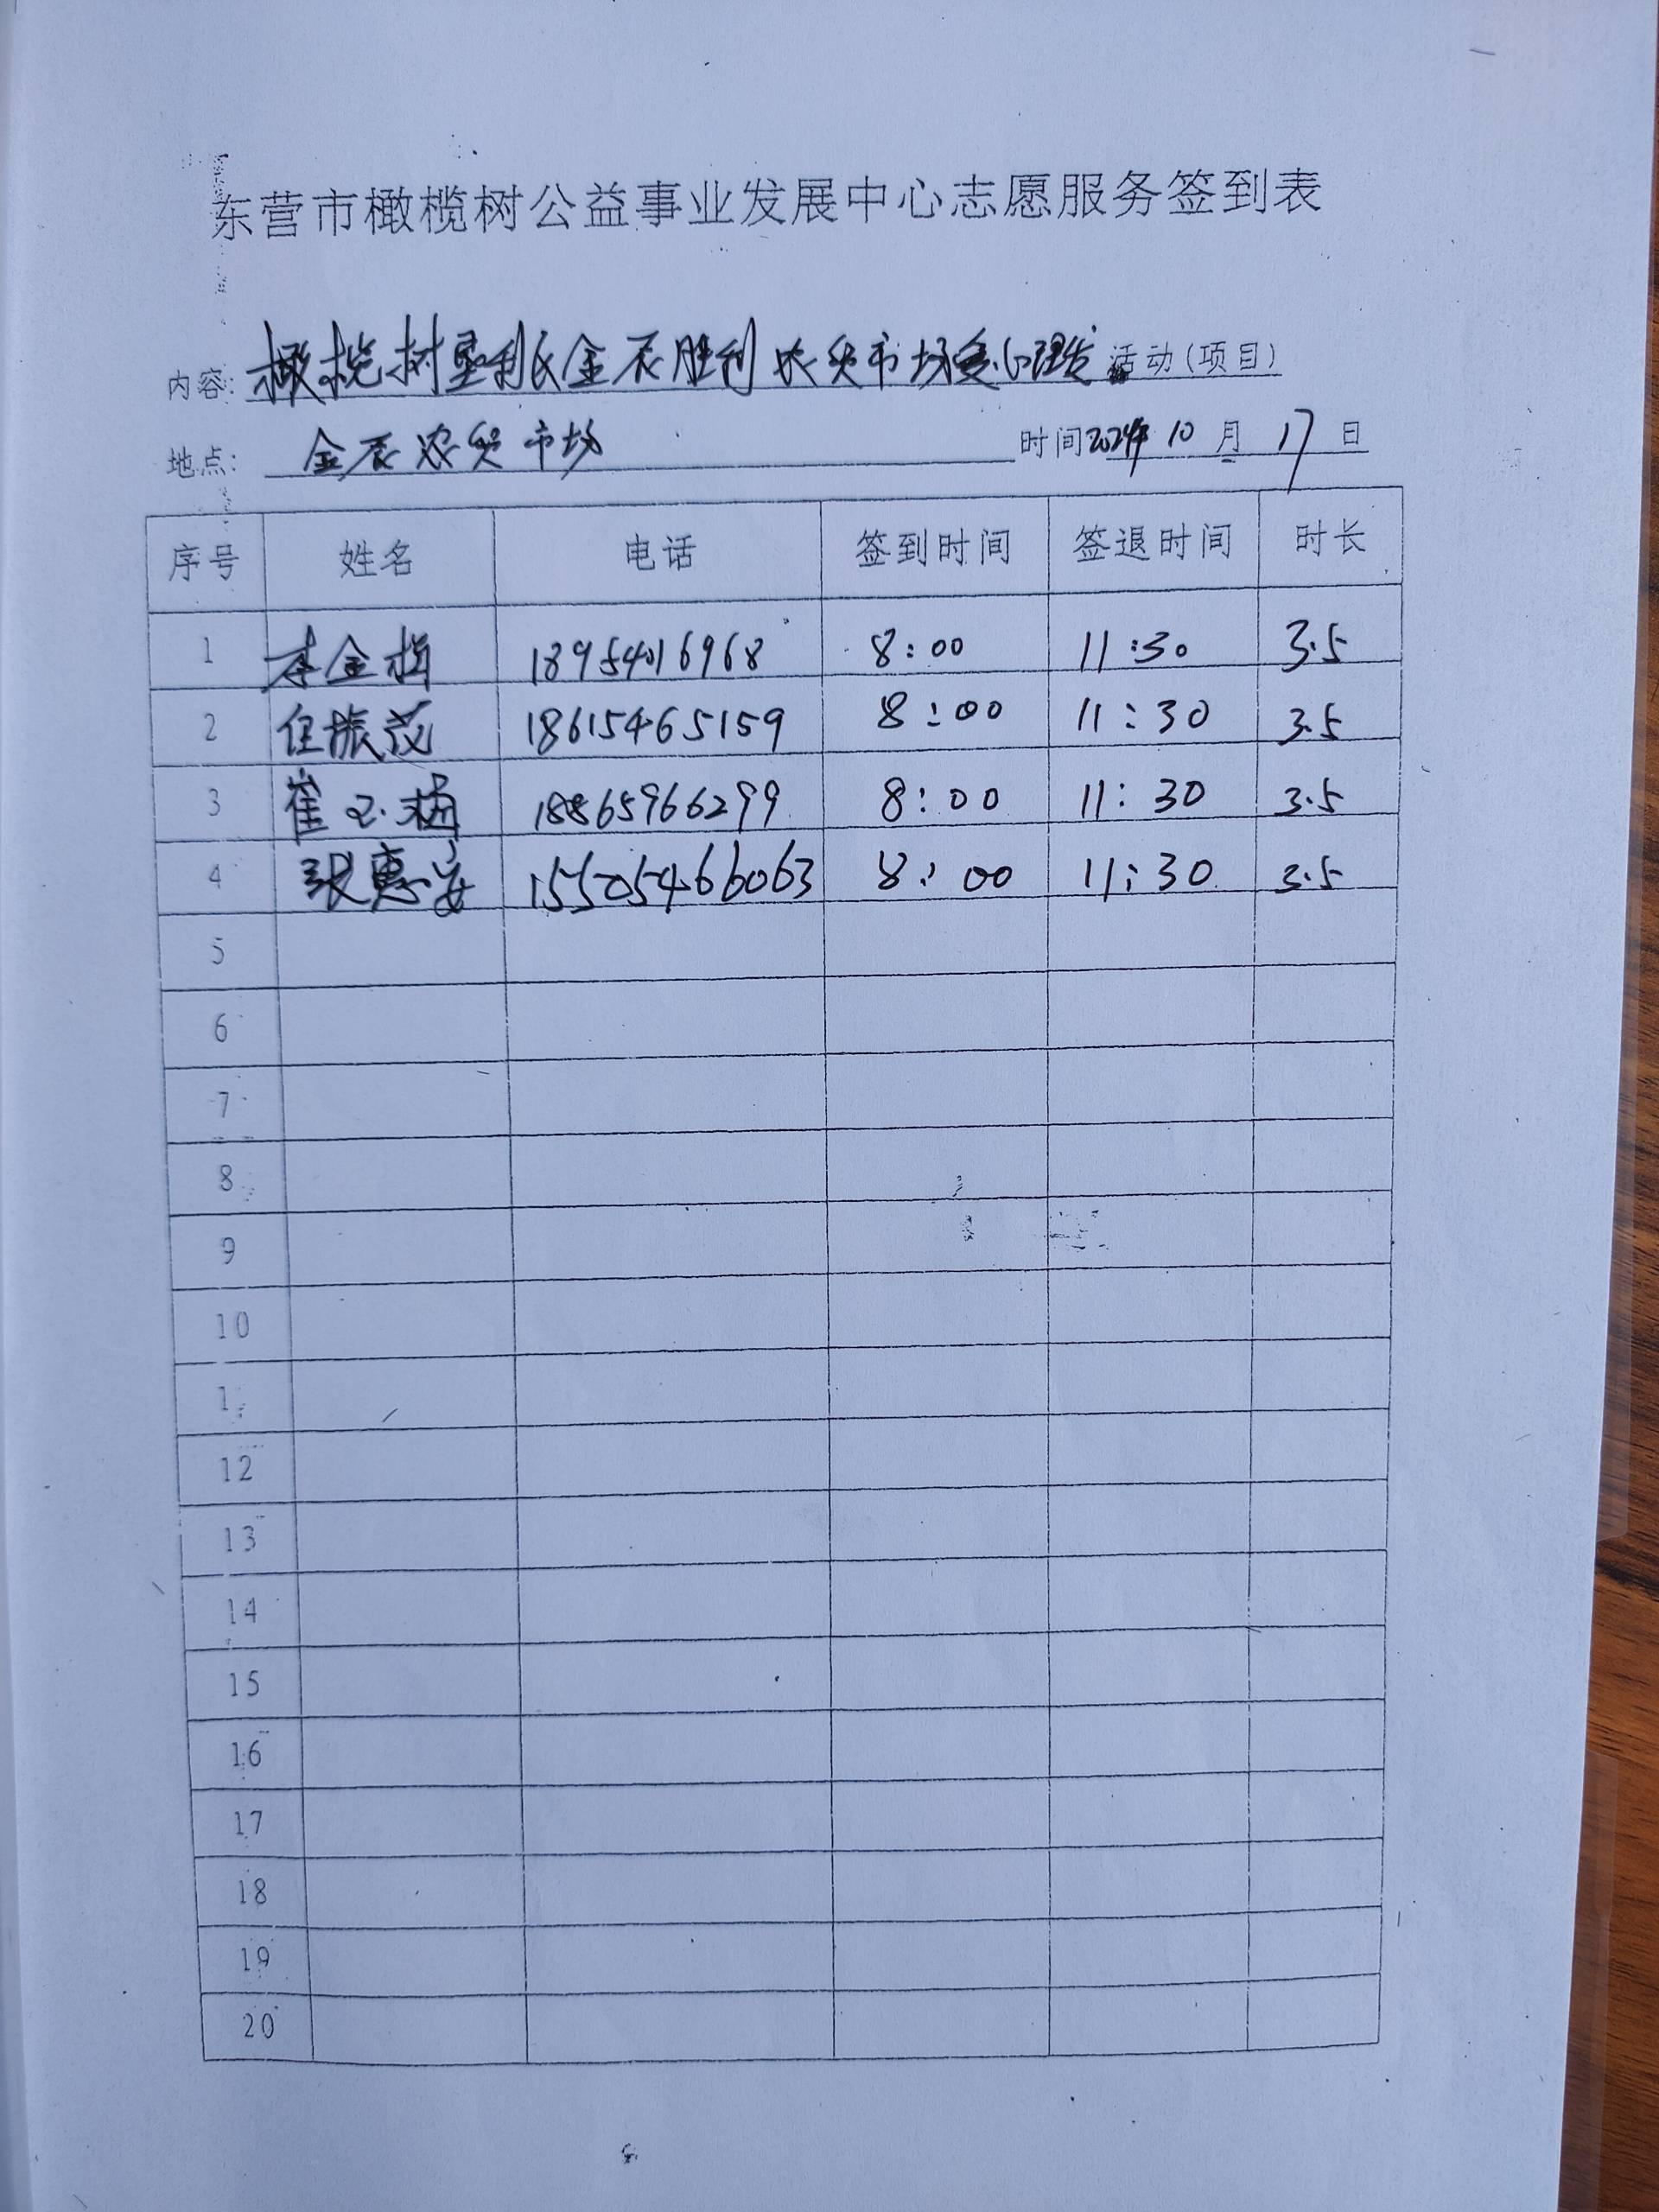 东营市橄榄树公益事业发展中心志愿服务签到表
内容: 橄榄树垦利区金辰胜利农贸市场爱心理发活动(项目)
地点: 金辰农贸市场 时间2024年10月17日
序号 姓名 电话 签到时间 签退时间 时长
1 李金梅 18954016968 8:00 11:30 3.5
2 任振茂 18615465159 8:00 11:30 3.5
3 崔玉梅 18865966299 8:00 11:30 3.5
4 张惠 15505466063 8:00 11:30 3.5
5
6
7
8
9
10
1
12
13
14
15
16
17
18
19
20